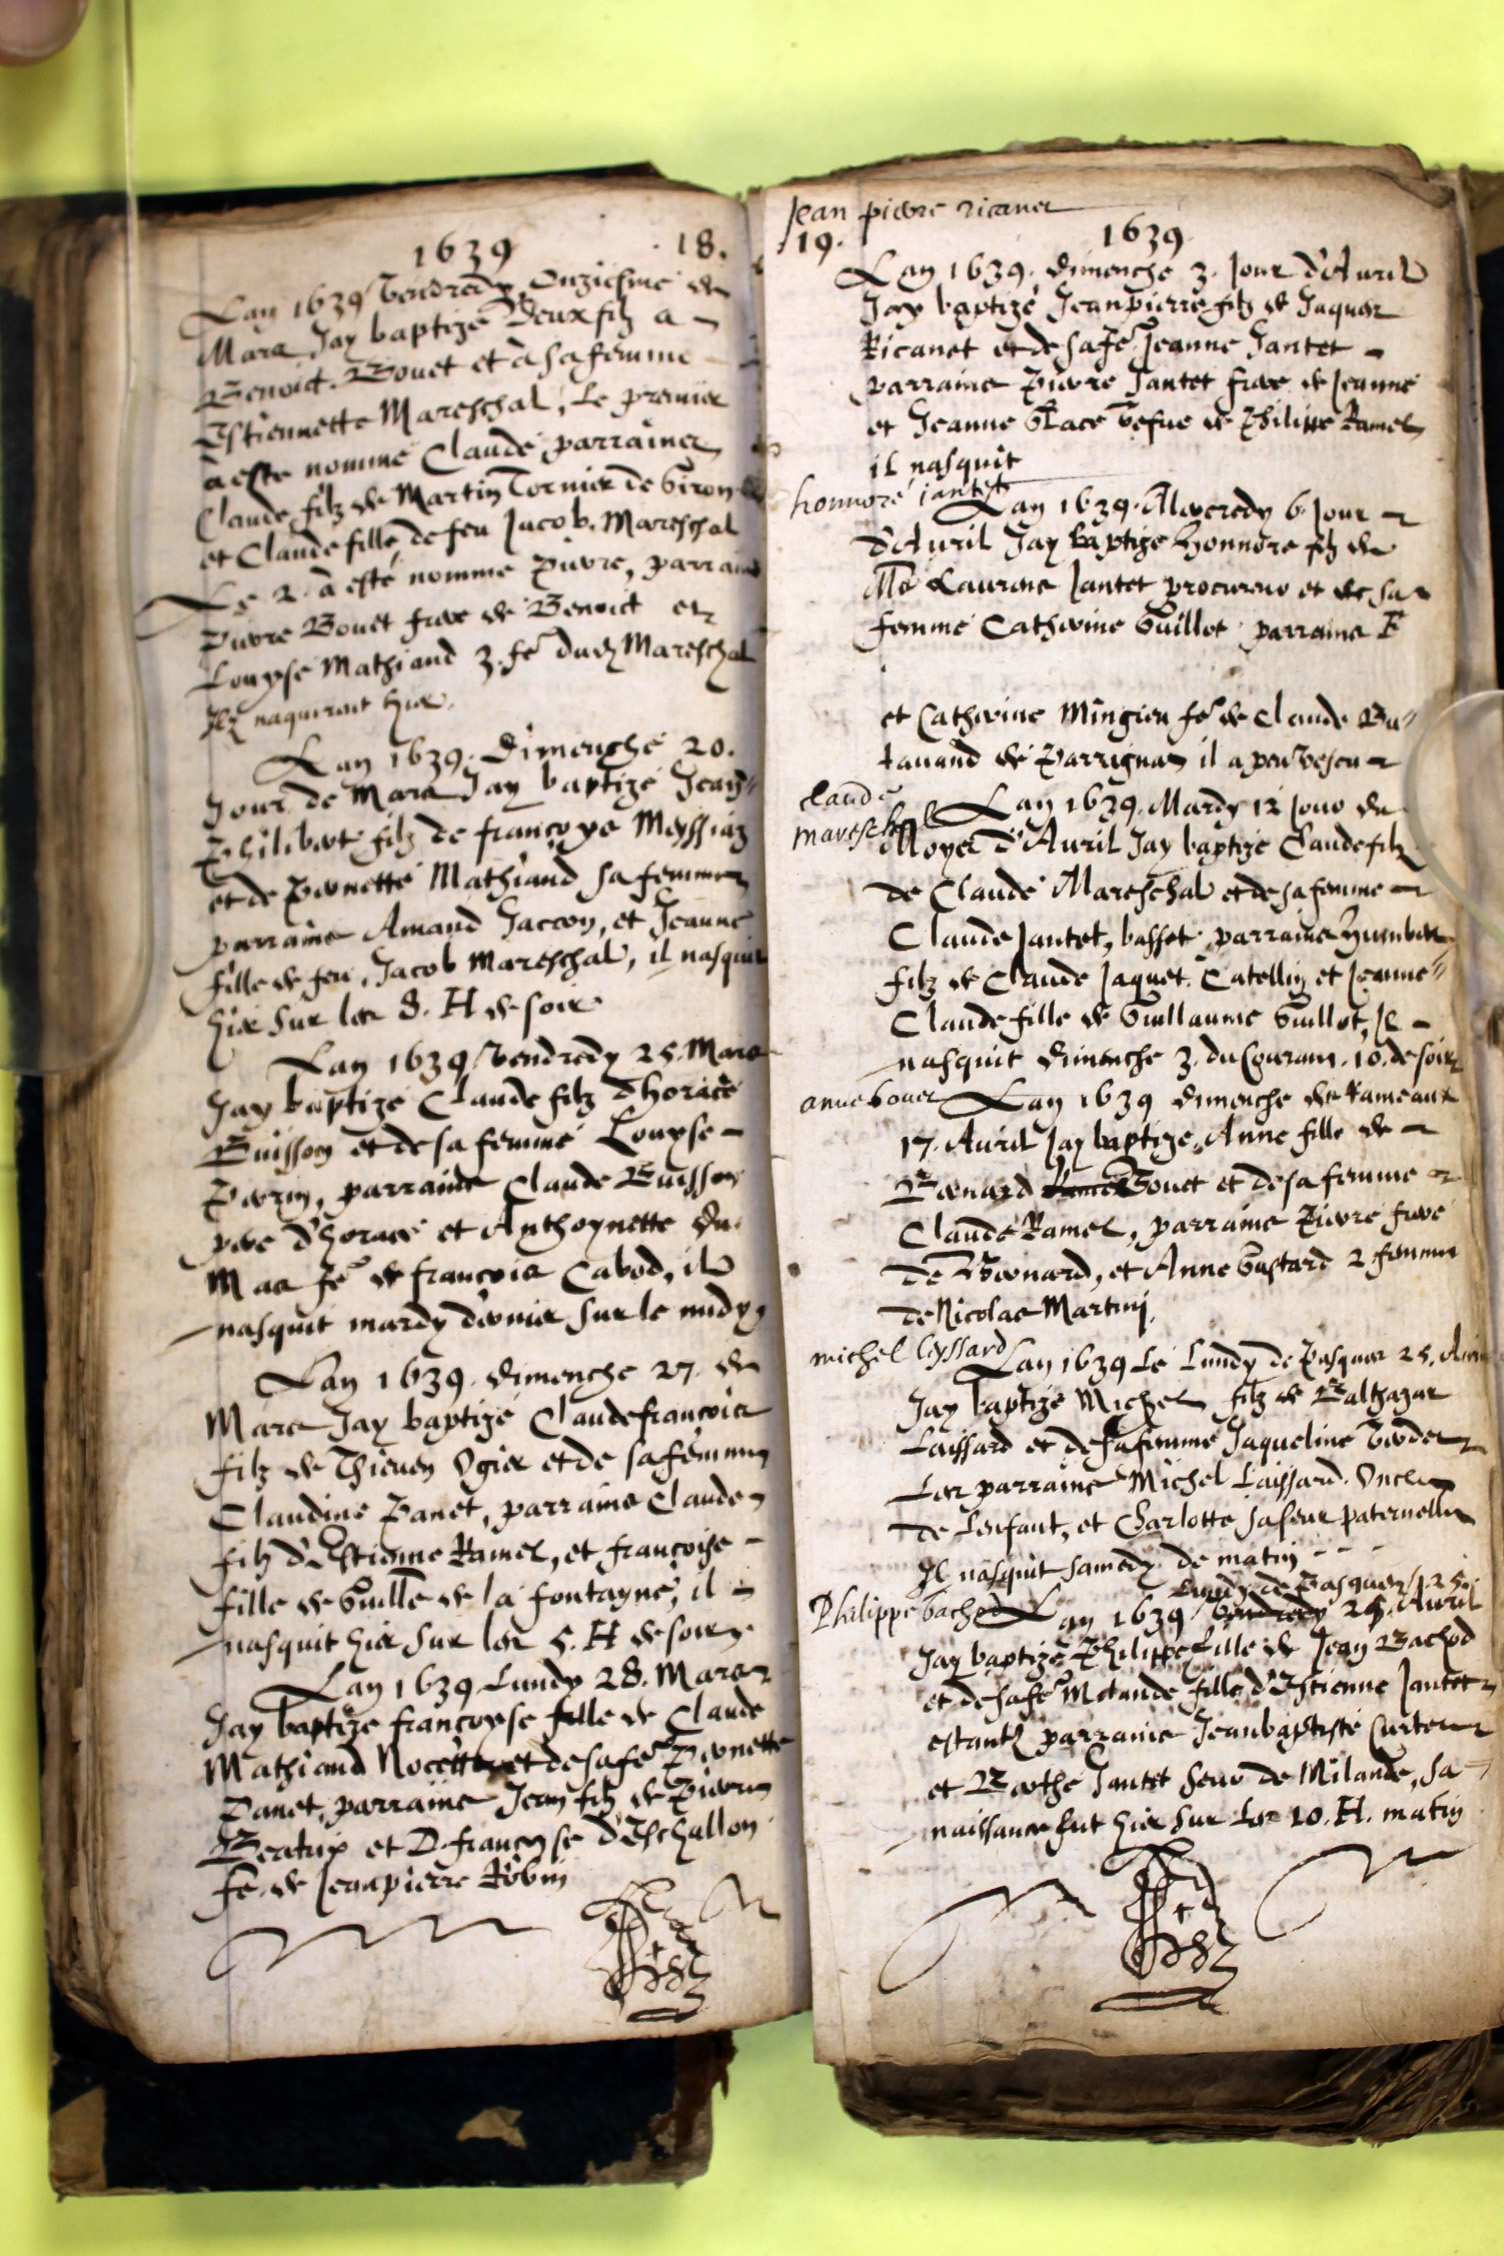 1639 18.
Lan 1639 Vendredy Onziesme de
Mars Jay baptizé Deux filz a
Benoict Bouet et à sa femme
Estiennette Mareschal, Le premier
à esté nommé Claude parrains
Claude filz de Martin Tornier de Giron
et Claude fille de feu Jacob Mareschal
Le 2. à esté nommé Pierre, parrains
Pierre Bouet frere de Benoict et
Louyse Mathiand 3. fe dud Mareschal
Ilz naquirent hier.
Lan 1639. Dimenche 20.
Jour de Mars Jay baptizé Jean
Philibert filz de françoys Meyssiaz
et de Pernette Mathiand sa femme
parrains Amand Jaccon, et Jeanne
fille de feu Jacob Mareschal, il nasquit
hier sur les 8. H de soir
Lan 1639 Vendredy 25. Mars
Jay baptizé Claude filz dhorace
Buisson et de sa femme Louyse
Perrin, parrains Claude Buisson
pere d'horace et Anthoynette du
Mas fe de françois Cabod, il
nasquit mardy dernier sur le midy
Lan 1639. dimenche 27. de
Mars Jay baptizé Claude françois
filz de Thieven Ogier et de sa femme
Claudine Panet, parrains Claude
filz d'Estienne Ramel, et françoise
fille de Guille de la fontayne, il
nasquit hier sur les 5. H de soir
Lan 1639 Lundy 28. Mars
Jay baptizé françoyse fille de Claude
Mathiand et de sa fe Pernette
Panet, parrains Jean filz de Pierre
Beatrix et D. françoyse d'Eschallon
fe. de Jeanpierre Robin
Jean pierre ricanet
19. 1639
Lan 1639. dimenche 3. Jour d'Auril
Jay baptizé Jeanpierre filz de Jaques
Ricanet et de sa fe Jeanne Jantet
parrains Pierre Jantet frere de Jeanne
et Jeanne Vefue de Philippe Ramel
il nasquit
honnoré iantet
Lan 1639. Mercredy 6. Jour
d'Auril Jay baptizé Honnoré filz de
Me Laurens Jantet procureur et de sa
femme Catherine Guillot parrains
et Catherine Mingieu fe de Claude Bu
tauand de Parrignas il a peu Vescu
claude
mareschal
Lan 1639. Mardy 12 Jour du
Moys d'Auril Jay baptizé Claude filz
de Claude Mareschal et de sa femme
Claude Jantet, basset, parrains Humbert
filz de Claude Jaquet Catellin et Jeanne
Claude fille de Guillaume Guillot, Il
nasquit dimenche 3. du Courant. 10. de soir
anne bouet
Lan 1639 dimenche des Rameaux
17. Auril Jay baptizé Anne fille de
Bernard Bouet et de sa femme
Claude Ramel, parrains Pierre frere
de Bernard, et Anne Gustard 2. femme
de Nicolas Martin,
michel lyssard
Lan 1639 Le Lundy de Pasques 25. Auril
Jay baptizé Michel filz de Balthazar
Laissard et de sa femme Jaqueline Verdet
Les parrains Michel Laissard Oncle
de Lenfant, et Charlotte sa seur paternelle
Il nasquit samedy de matin
Lundy de Pasques 25.
Philippe bachod
Lan 1639 Vendredy 25. Auril
Jay baptizé Philippe fille de Jean Bachod
et de sa fe Milande fille d'Estienne Jantet
estantz parrains Jeanbaptiste Curtet
et Berthe Jantet seur de Milande, sa
naissance fut hier sur les 10. H. matin